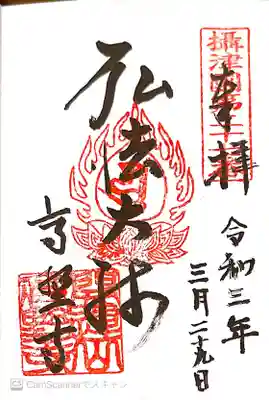 攝津国第三
奉拝
令和三年
三月二十九日
弘法大師
高照寺
CamScannerでスキャン